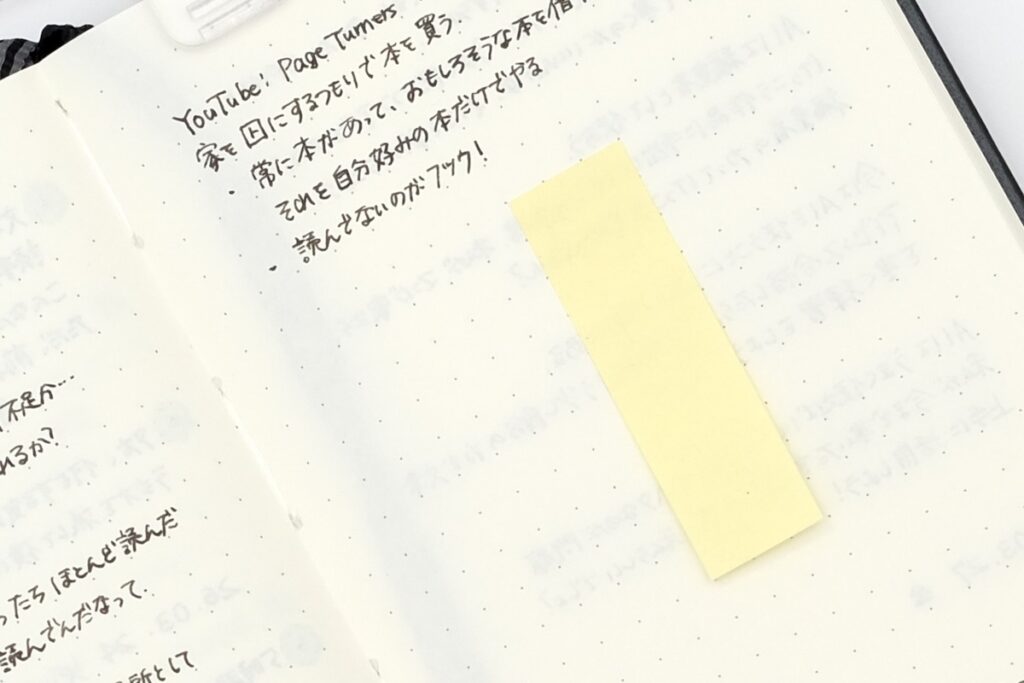 不足分…
れるか?
ったらほとんど読んだ
読んでんだなって.
所として
YouTube: Page Turners
家を にするつもりで本を買う
・常に本があって、おもしろそうな本を借
それを自分好みの本だけでやる
・読んでないのがフツウ!